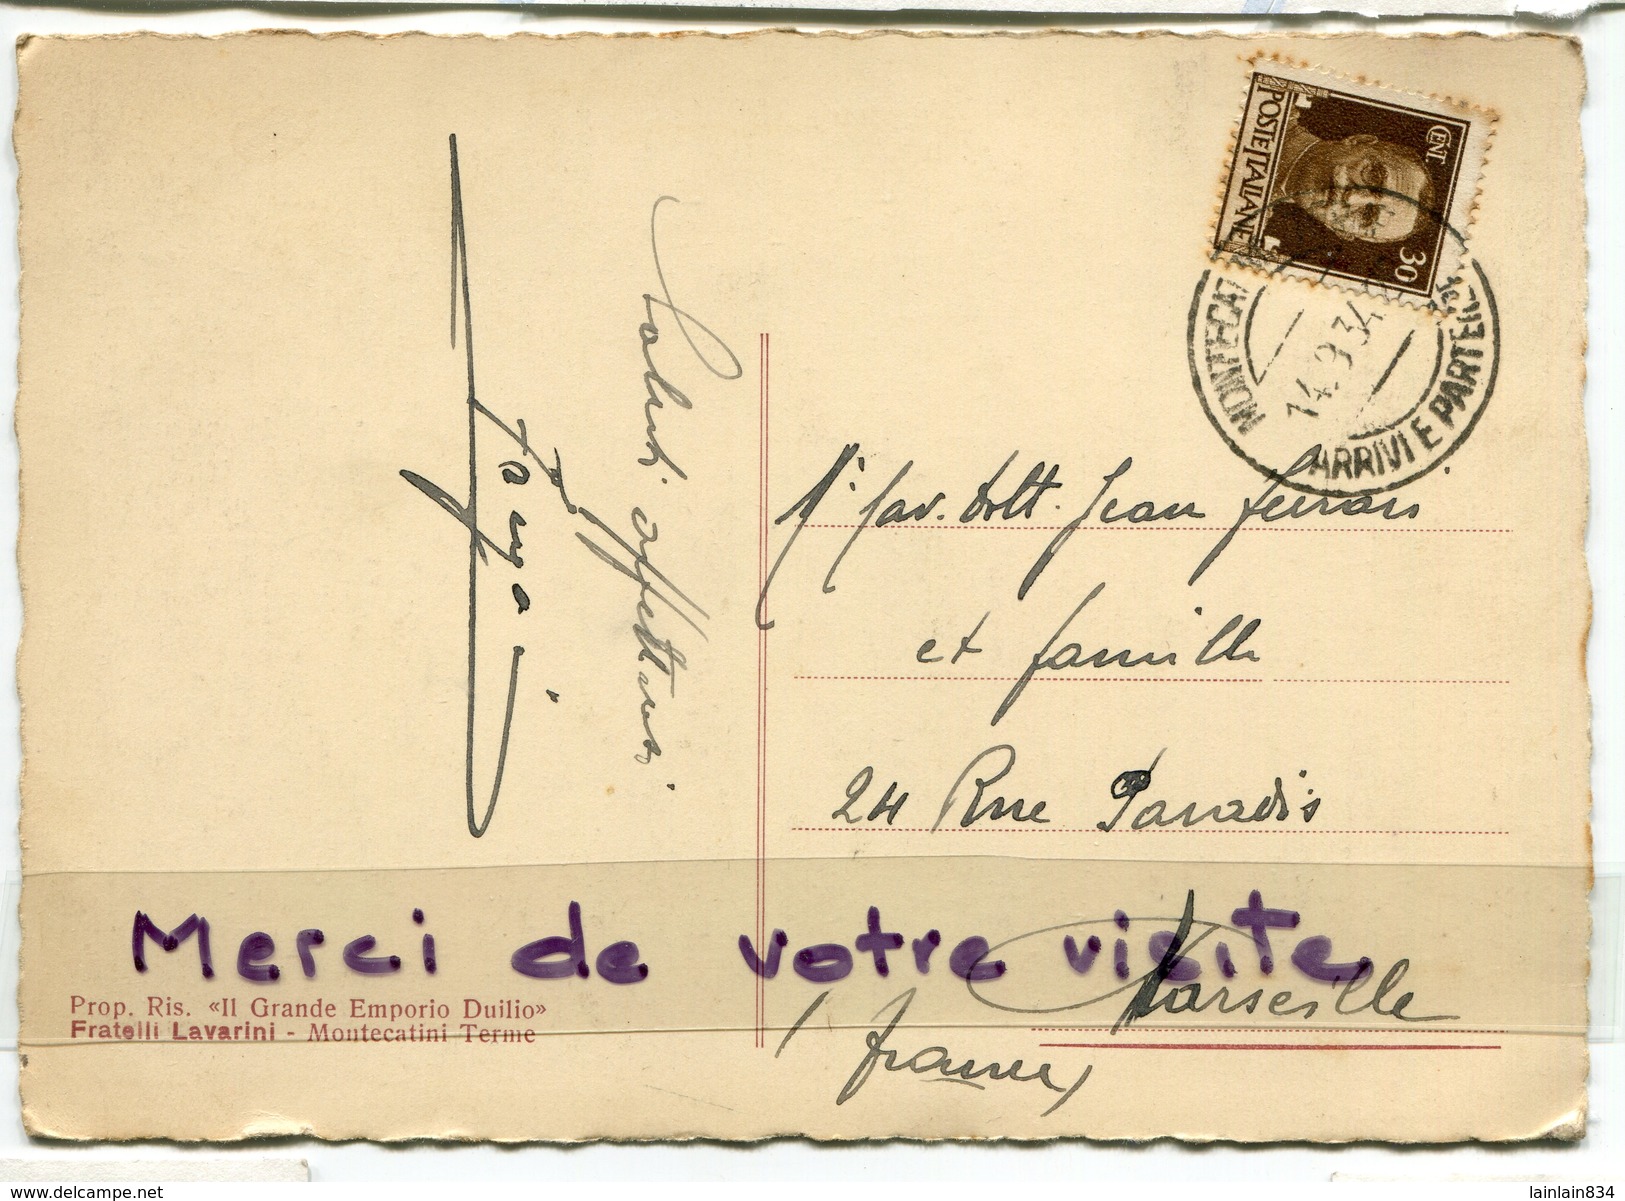 CENT. 30
POSTE ITALIANE
MONTECAT
14.9.34
ARRIVI E PARTENZE
Saluti affettuosi
Cav. Dott. Jean Ferrari
et famille
24 Rue Paradis
Marseille
(France)
Merci de votre visite
Prop. Ris. «Il Grande Emporio Duilio»
Fratelli Lavarini - Montecatini Terme
delcampe.net
lainlain834